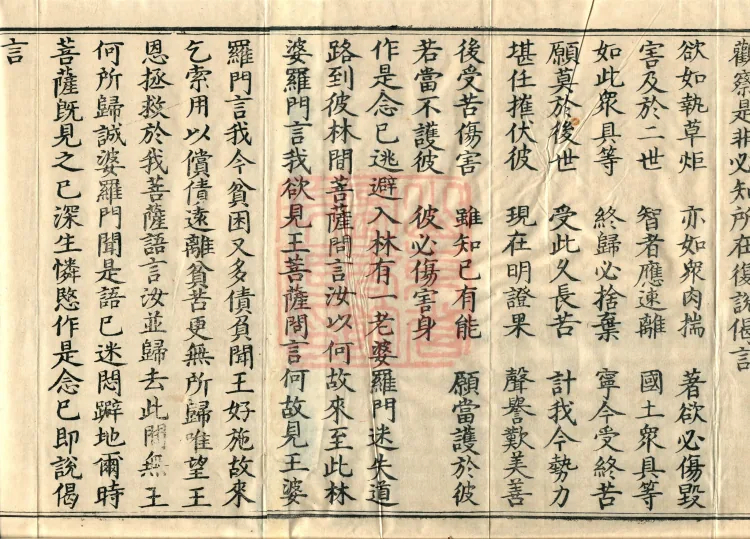 觀察是非必知所在復說偈言
欲如執草炬 亦如衆肉揣 著欲必傷毀
害及於二世 智者應速離 國土衆具等
如此衆具等 終歸必捨棄 寧今受終苦
願莫於後世 受此久長苦 計我今勢力
堪任摧伏彼 現在明證果 聲譽歎美善
後受苦傷害 雖知已有能 願當護於彼
若當不護彼 彼必傷害身
作是念已逃避入林有一老婆羅門迷失道
路到彼林間菩薩問言汝以何故來至此林
婆羅門言我欲見王菩薩問言何故見王婆
羅門言我今貧困又多債負聞王好施故來
乞索用以償債遠離貧苦更無所歸唯望王
恩拯救於我菩薩語言汝並歸去此間無王
何所歸誠婆羅門聞是語已迷悶躃地爾時
菩薩既見之已深生憐愍作是念已即說偈
言